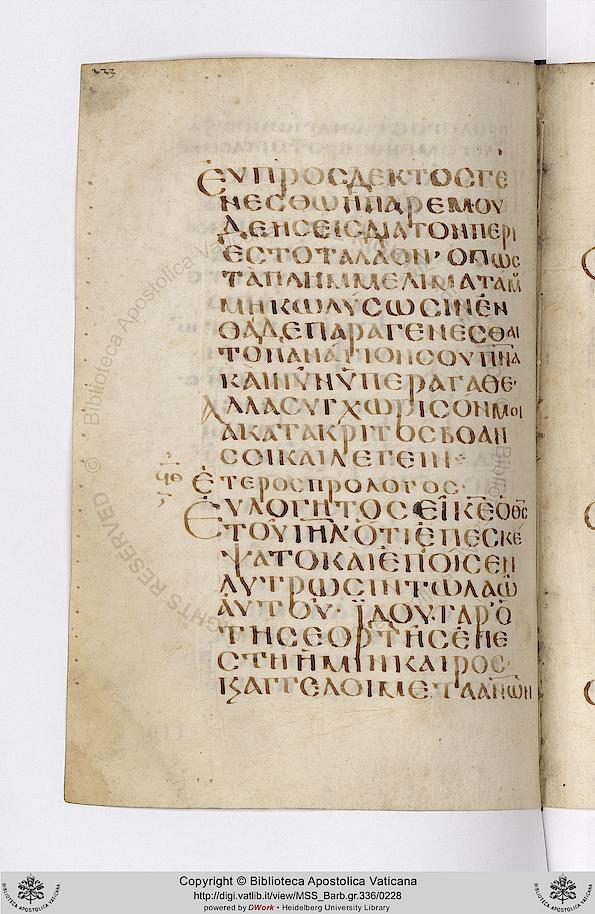 223
ΕΥΠΡΟΣΔΕΚΤΟΣΓΕ
ΝΕΣΘΩΠΑΡΕΜΟΥ
ΔΕΗΣΕΙΣΔΙΑΤΟΝΠΕΡΙ
ΕΣΤΟΤΑΛΑΟΝ· ΟΠΩΣ
ΤΑΠΛΗΜΜΕΛΙΜΑΤΑΜ
ΜΗΚΩΛΥΣΩΣΙΝΕΝ
ΘΑΔΕΠΑΡΑΓΕΝΕΣΘΑΙ
ΤΟΠΑΝΑΓΙΟΝΣΟΥΠΝΑ
ΚΑΙΝΥΝΥΠΕΡΑΓΑΘΕ·
ΑΛΛΑΣΥΓΧΩΡΙΣΟΝΜΟΙ
ΑΚΑΤΑΚΡΙΤΟΣΒΟΑΝ
ΣΟΙΚΑΙΛΕΓΕΙΝ
ΕΤΕΡΟΣΠΡΟΛΟΓΟΣ·
ΕΥΛΟΓΗΤΟΣΕΙΚΕΟΘΣ
ΤΟΥΙΗΛΟΤΙΕΠΕΣΚΕ
ΨΑΤΟΚΑΙΕΠΟΙΣΕΝ
ΛΥΤΡΩΣΙΝΤΩΛΑΩ
ΑΥΤΟΥ· ΪΔΟΥΓΑΡΟ
ΤΗΣΕΟΡΤΗΣΕΠΕ
ΣΤΗΗΜΙΝΚΑΙΡΟΣ·
ΑΓΓΕΛΟΙΜΕΤΑΑΝΩΝ
© Biblioteca Apostolica Vaticana
RIGHTS RESERVED
Copyright © Biblioteca Apostolica Vaticana
http://digi.vatlib.it/view/MSS_Barb.gr.336/0228
powered by DWork • Heidelberg University Library